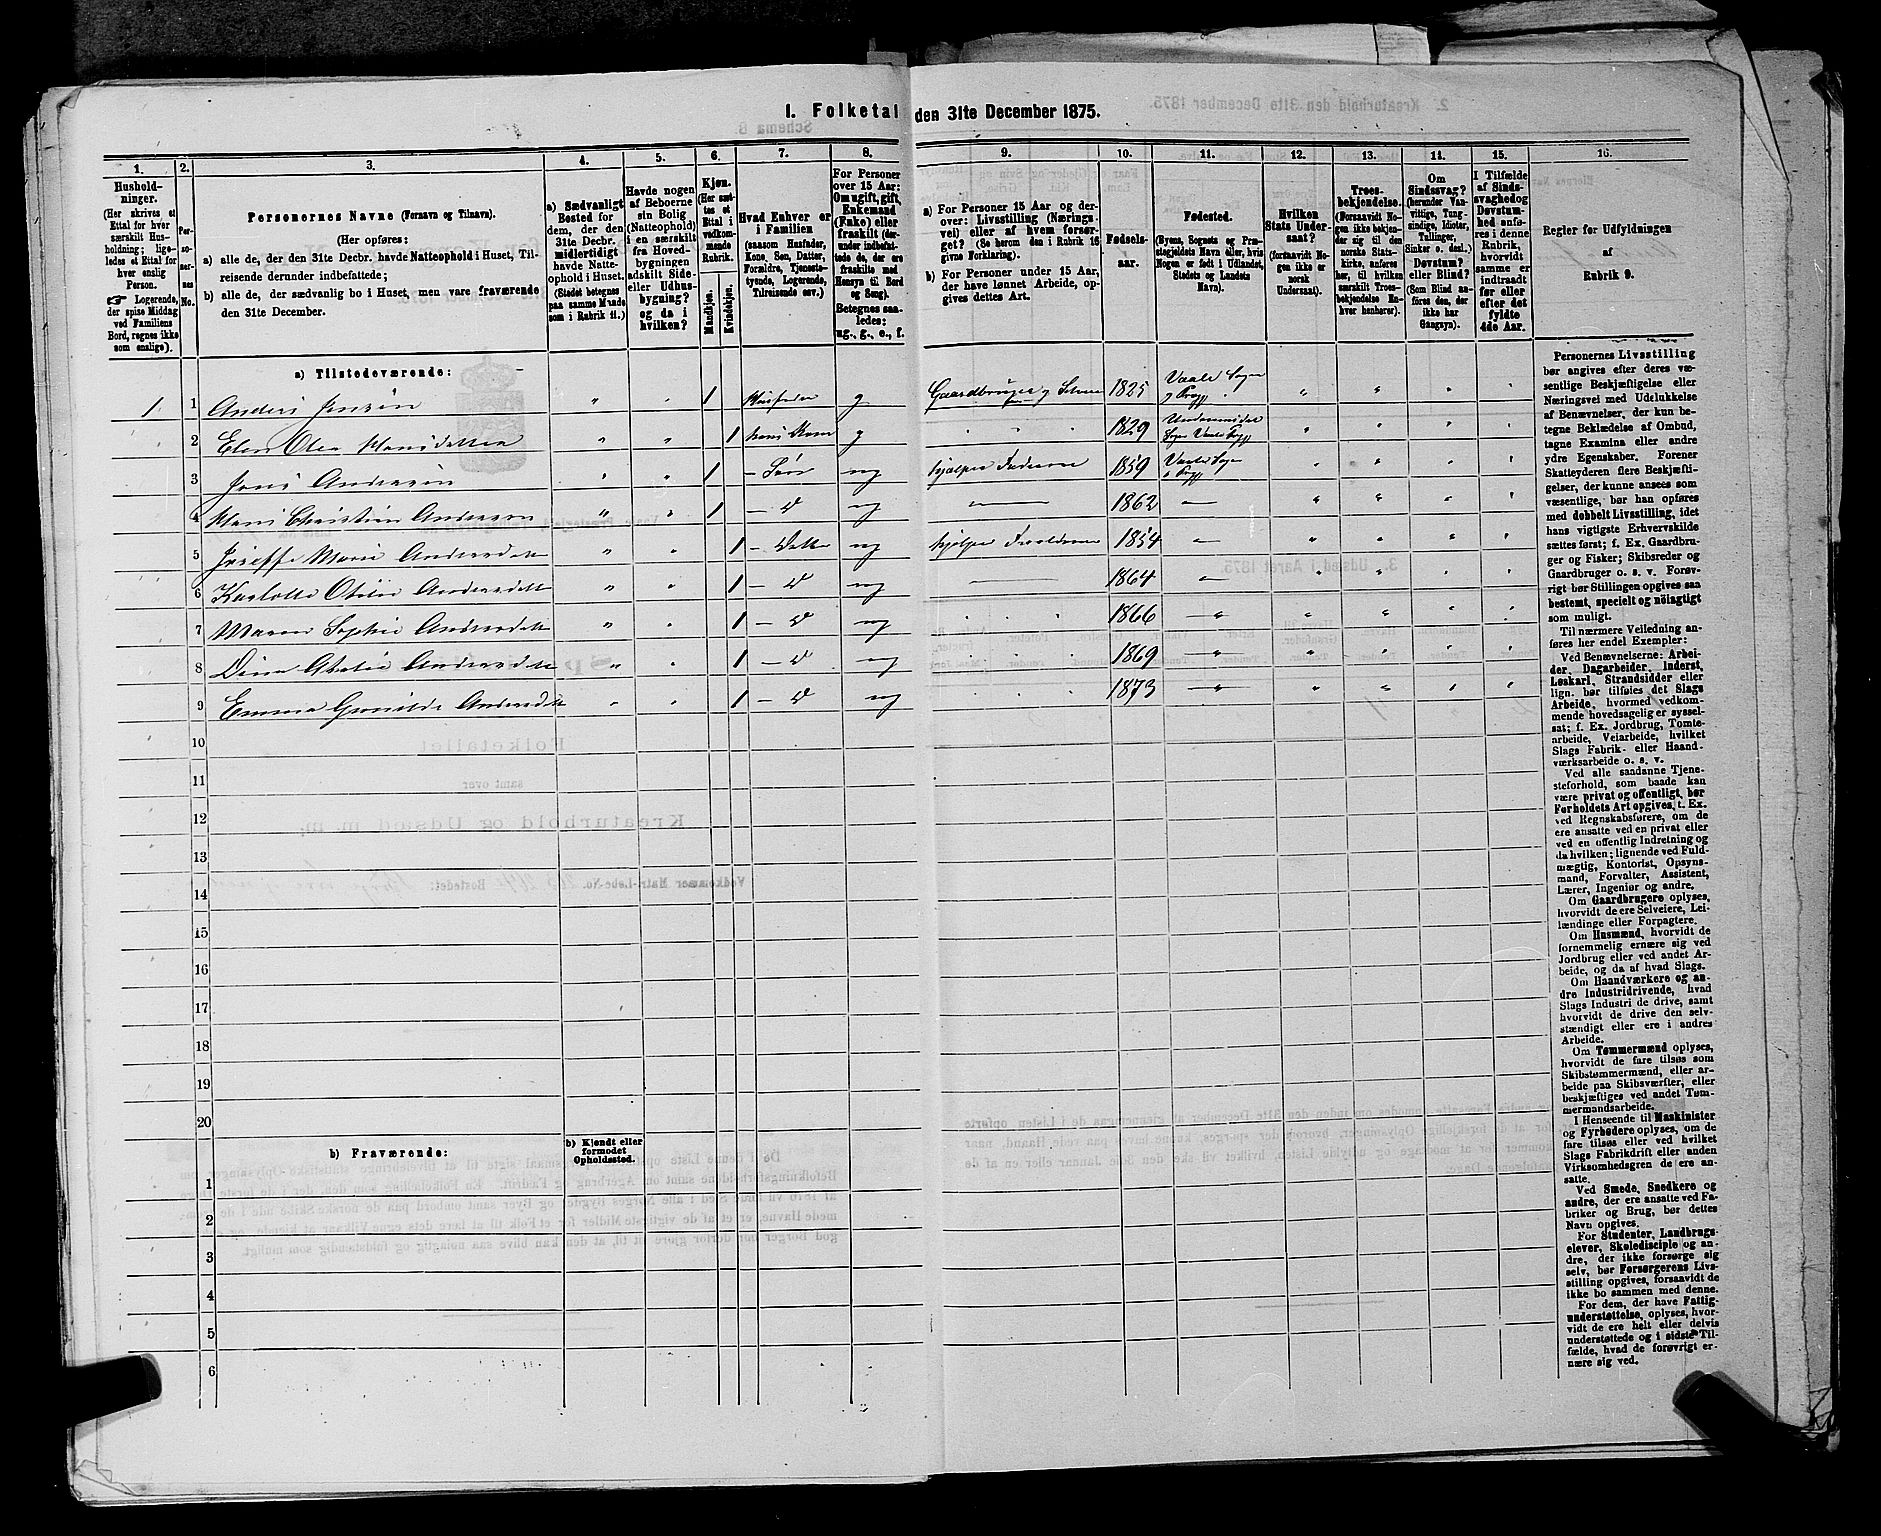 I. Folketal den 31te December 1875.
1. 2. 3. 4. 5. 6. 7. 8. 9. 10. 11. 12. 13. 14. 15. 16.
Hushold-
ninger.
(Her skrives et
Ettal for hver
særskilt Hus-
holdning; lige-
ledes et Ettal for
hver enslig
Person.
☞ Logerende,
der spise Middag
ved Familiens
Bord, regnes ikke
som enslige).
Per-
so-
ner-
nes
No.
Personernes Navne (Fornavn og Tilnavn).
(Her opføres:
a) alle de, der den 31te Decbr. havde Natteophold i Huset, Til-
reisende derunder indbefattede;
b) alle de, der sædvanlig bo i Huset, men vare fraværende
den 31te December.
a) Sædvanligt
Bosted for
dem, der den
31te Decbr.
midlertidigt
havde Natte-
ophold i Huset.
(Stedet betegnes
paa samme Maade
som i Rubrik 11.)
Havde nogen
af Beboerne
sin Bolig
(Natteophold)
i en særskilt
fra Hoved-
bygningen
adskilt Side-
eller Udhus-
bygning?
og da i
hvilken?
Kjøn.
(Her sæt-
tes et
Ettal i
vedkom-
mende
Rubrik.
Mandkjøn.
Kvindekjøn.
Hvad Enhver er
i Familien
(saasom Husfader,
Kone, Søn, Datter,
Forældre, Tjeneste-
tyende, Logerende,
Tilreisende osv.)
For Personer
over 15 Aar:
Om ugift, gift,
Enkemand
(Enke) eller
fraskilt (der-
under indbefat-
tede de, der ere
fraskilte med
Hensyn til Bord
og Seng).
Betegnes saa-
ledes:
ug., g., e., f.
a) For Personer 15 Aar og der-
over: Livsstilling (Nærings-
vei) eller af hvem forsør-
get? (Se herom den i Rubrik 16
givne Forklaring).
b) For Personer under 15 Aar,
der have lønnet Arbeide, op-
gives dettes Art.
Fødsels-
aar.
Fødested.
(Byens, Sognets og Præ-
stegjeldets Navn eller, hvis
Nogen er født i Udlandet,
Stedets og Landets
Navn).
Hvilken
Stats Under-
saat?
(forsaavidt No-
gen ikke er
norsk
Undersaat).
Troes-
bekjendelse.
(Forsaavidt No-
gen ikke bekjen-
der sig til den
norske Stats-
kirke, anføres
her, til hvilken
særskilt Troes-
bekjendelse En-
hver henhører).
Om
Sindssvag?
(herunder Van-
vittige, Tung-
sindige, Idioter,
Tullinger,
Sinker o. desl.)
Døvstum?
eller Blind?
(Som Blind an-
føres den, der
ikke har
Gangsyn).
I Tilfælde
af Sinds-
svaghed og
Døvstum-
hed anfø-
res i denne
Rubrik,
hvorvidt
samme er
indtraadt
før eller
efter det
fyldte
4de Aar.
Regler for Udfyldningen
af
Rubrik 9.
a) Tilstedeværende:
1 1 Anders Jensen " " 1 Husfader g Gaardbruger og Selveier 1825 Vaale Sogn
og Prgj
2 Elen Olea Hansdatter " " 1 hans Kone g 1829 Undrumsdal
Sogn Vaale Prgj
3 Jens Andersen " " 1 – Søn ug hjælper Faderen 1859 Vaale Sogn
o Prgj
4 Hans Christian Andersen " " 1 – D ug — " — 1862 — " —
5 Joseffe Marie Andersdatt " " 1 – Datter ug hjælper Forældrene 1854 — " —
6 Karlotte Otilie Andersdatt " " 1 – D ug — " — 1864 — " —
7 Maren Sophie Andersdatt " " 1 – D ug 1866 — " —
8 Dina Andersdatt " " 1 – D ug 1869 — " —
9 Emma Gunilde Andersdatt " " 1 – D ug 1873 — " —
10
11
12
13
14
15
16
17
18
19
20
b) Fraværende:
b) Kjendt eller
formodet
Opholdssted.
1
2
3
4
5
6
Personernes Livsstilling
bør angives efter deres væ-
sentlige Beskjæftigelse eller
Næringsvei med Udelukkelse
af Benævnelser, der kun be-
tegne Beklædelse af Ombud,
tagne Examina eller andre
ydre Egenskaber. Forener
Skatteyderen flere Beskjæfti-
gelser, der kunne ansees som
væsentlige, bør han opføres
med dobbelt Livsstilling, idet
hans vigtigste Erhvervskilde
sættes først; f. Ex. Gaardbru-
ger og Fisker; Skibsreder og
Gaardbruger o. s. v. Forøv-
rigt bør Stillingen opgives saa
bestemt, specielt og nøiagtigt
som muligt.
Til nærmere Veiledning an-
føres her endel Exempler:
Ved Benævnelserne: Arbei-
der, Dagarbeider, Inderst,
Løskarl, Strandsidder eller
lign. bør tilføies det Slags
Arbeide, hvormed vedkom-
mende hovedsagelig er syssel-
sat; f. Ex. Jordbrug, Tomte-
arbeide, Veiarbeide, hvilket
Slags Fabrik- eller Haand-
værksarbeide o. s. v.
Ved alle saadanne Tjene-
steforhold, som baade kan
være privat og offentligt, bør
Forholdets Art opgives, t. Ex.
ved Regnskabsførere, om de
ere ansatte ved en privat eller
ved en offentlig Indretning og
da hvilken; lignende ved Fuld-
mægtig, Kontorist, Opsyns-
mand, Forvalter, Assistent,
Lærer, Ingeniør og andre.
Om Gaardbrugere oplyses,
hvorvidt de ere Selveiere, Lei-
lændinge eller Forpagtere.
Om Husmænd, hvorvidt de
fornemmelig ernære sig ved
Jordbrug eller ved andet Ar-
beide, og da af hvad Slags.
Om Haandværkere og an-
dre Industridrivende, hvad
Slags Industri de drive, samt
hvorvidt de drive den selv-
stændigt eller ere i andres
Arbeide.
Om Tømmermænd oplyses,
hvorvidt de fare tilsøs som
Skibstømmermænd, eller ar-
beide paa Skibsværfter, eller
beskjæftiges ved andet Tøm-
mermandsarbeide.
I Henseende til Maskinister
og Fyrbødere oplyses, om de
fare tilsøs eller ved hvilket
Slags Fabrikdrift eller anden
Virksomhedsgren de ere an-
satte.
Ved Smede, Snedkere og
andre, der ere ansatte ved Fa-
briker og Brug, bør dettes
Navn opgives.
For Studenter, Landbrugs-
elever, Skoledisciple og an-
dre, der ikke forsørge sig
selv, bør Forsørgerens Livs-
stilling opgives, forsaavidt de
ikke bo sammen med denne.
For dem, der have Fattig-
understøttelse, oplyses, hvor-
vidt de ere helt eller delvis
understøttede og i sidste Til-
fælde, hvad de forøvrigt er-
nære sig ved.